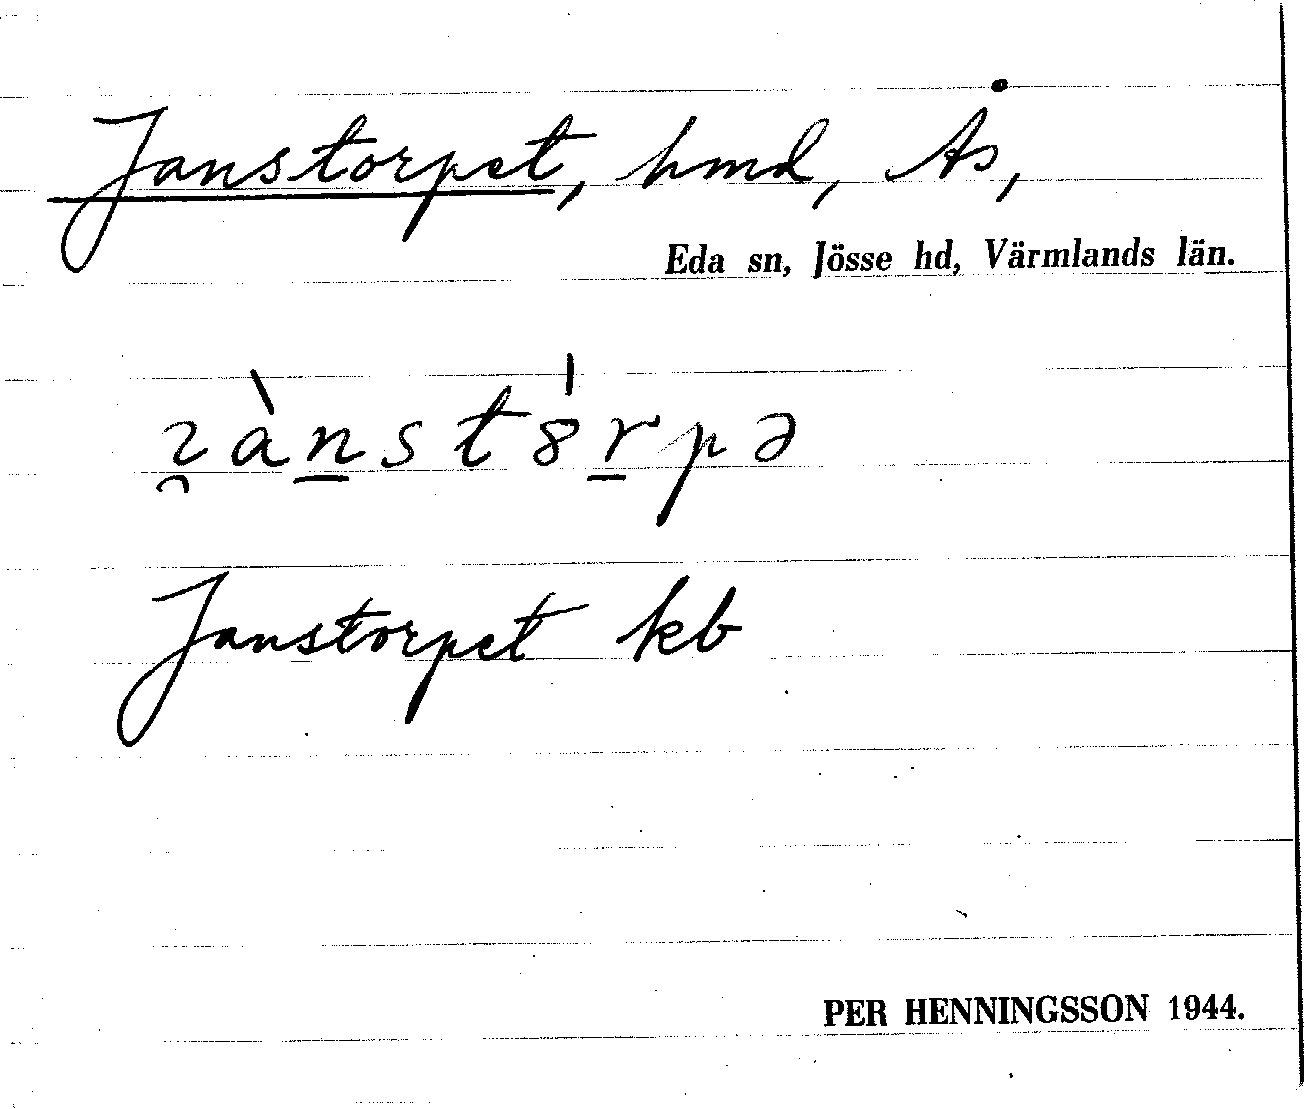 Janstorpet, hmd, Ås,
Eda sn, Jösse hd, Värmlands län.
Janstorpet kb
PER HENNINGSSON 1944.